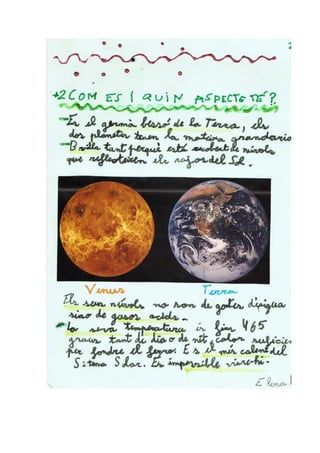 2COM ES I QUIN ASPECTE TÉ?
Es el germà bessó de la Terra, els
dos planetes tenen la mateixa grandària
Brilla tant perquè està envoltat de núvols
que reflecteixen els rajos del Sol.
Venus Terra
Els seus núvols no son de gotes d'aigua
sino de gasos àcids.
La seva temperatura és fins 465
graus tant de dia o de nit, calor suficien
per fondre el ferro. Es el més calent del
Sistema Solar. Es impossible viure-hi.
Elena